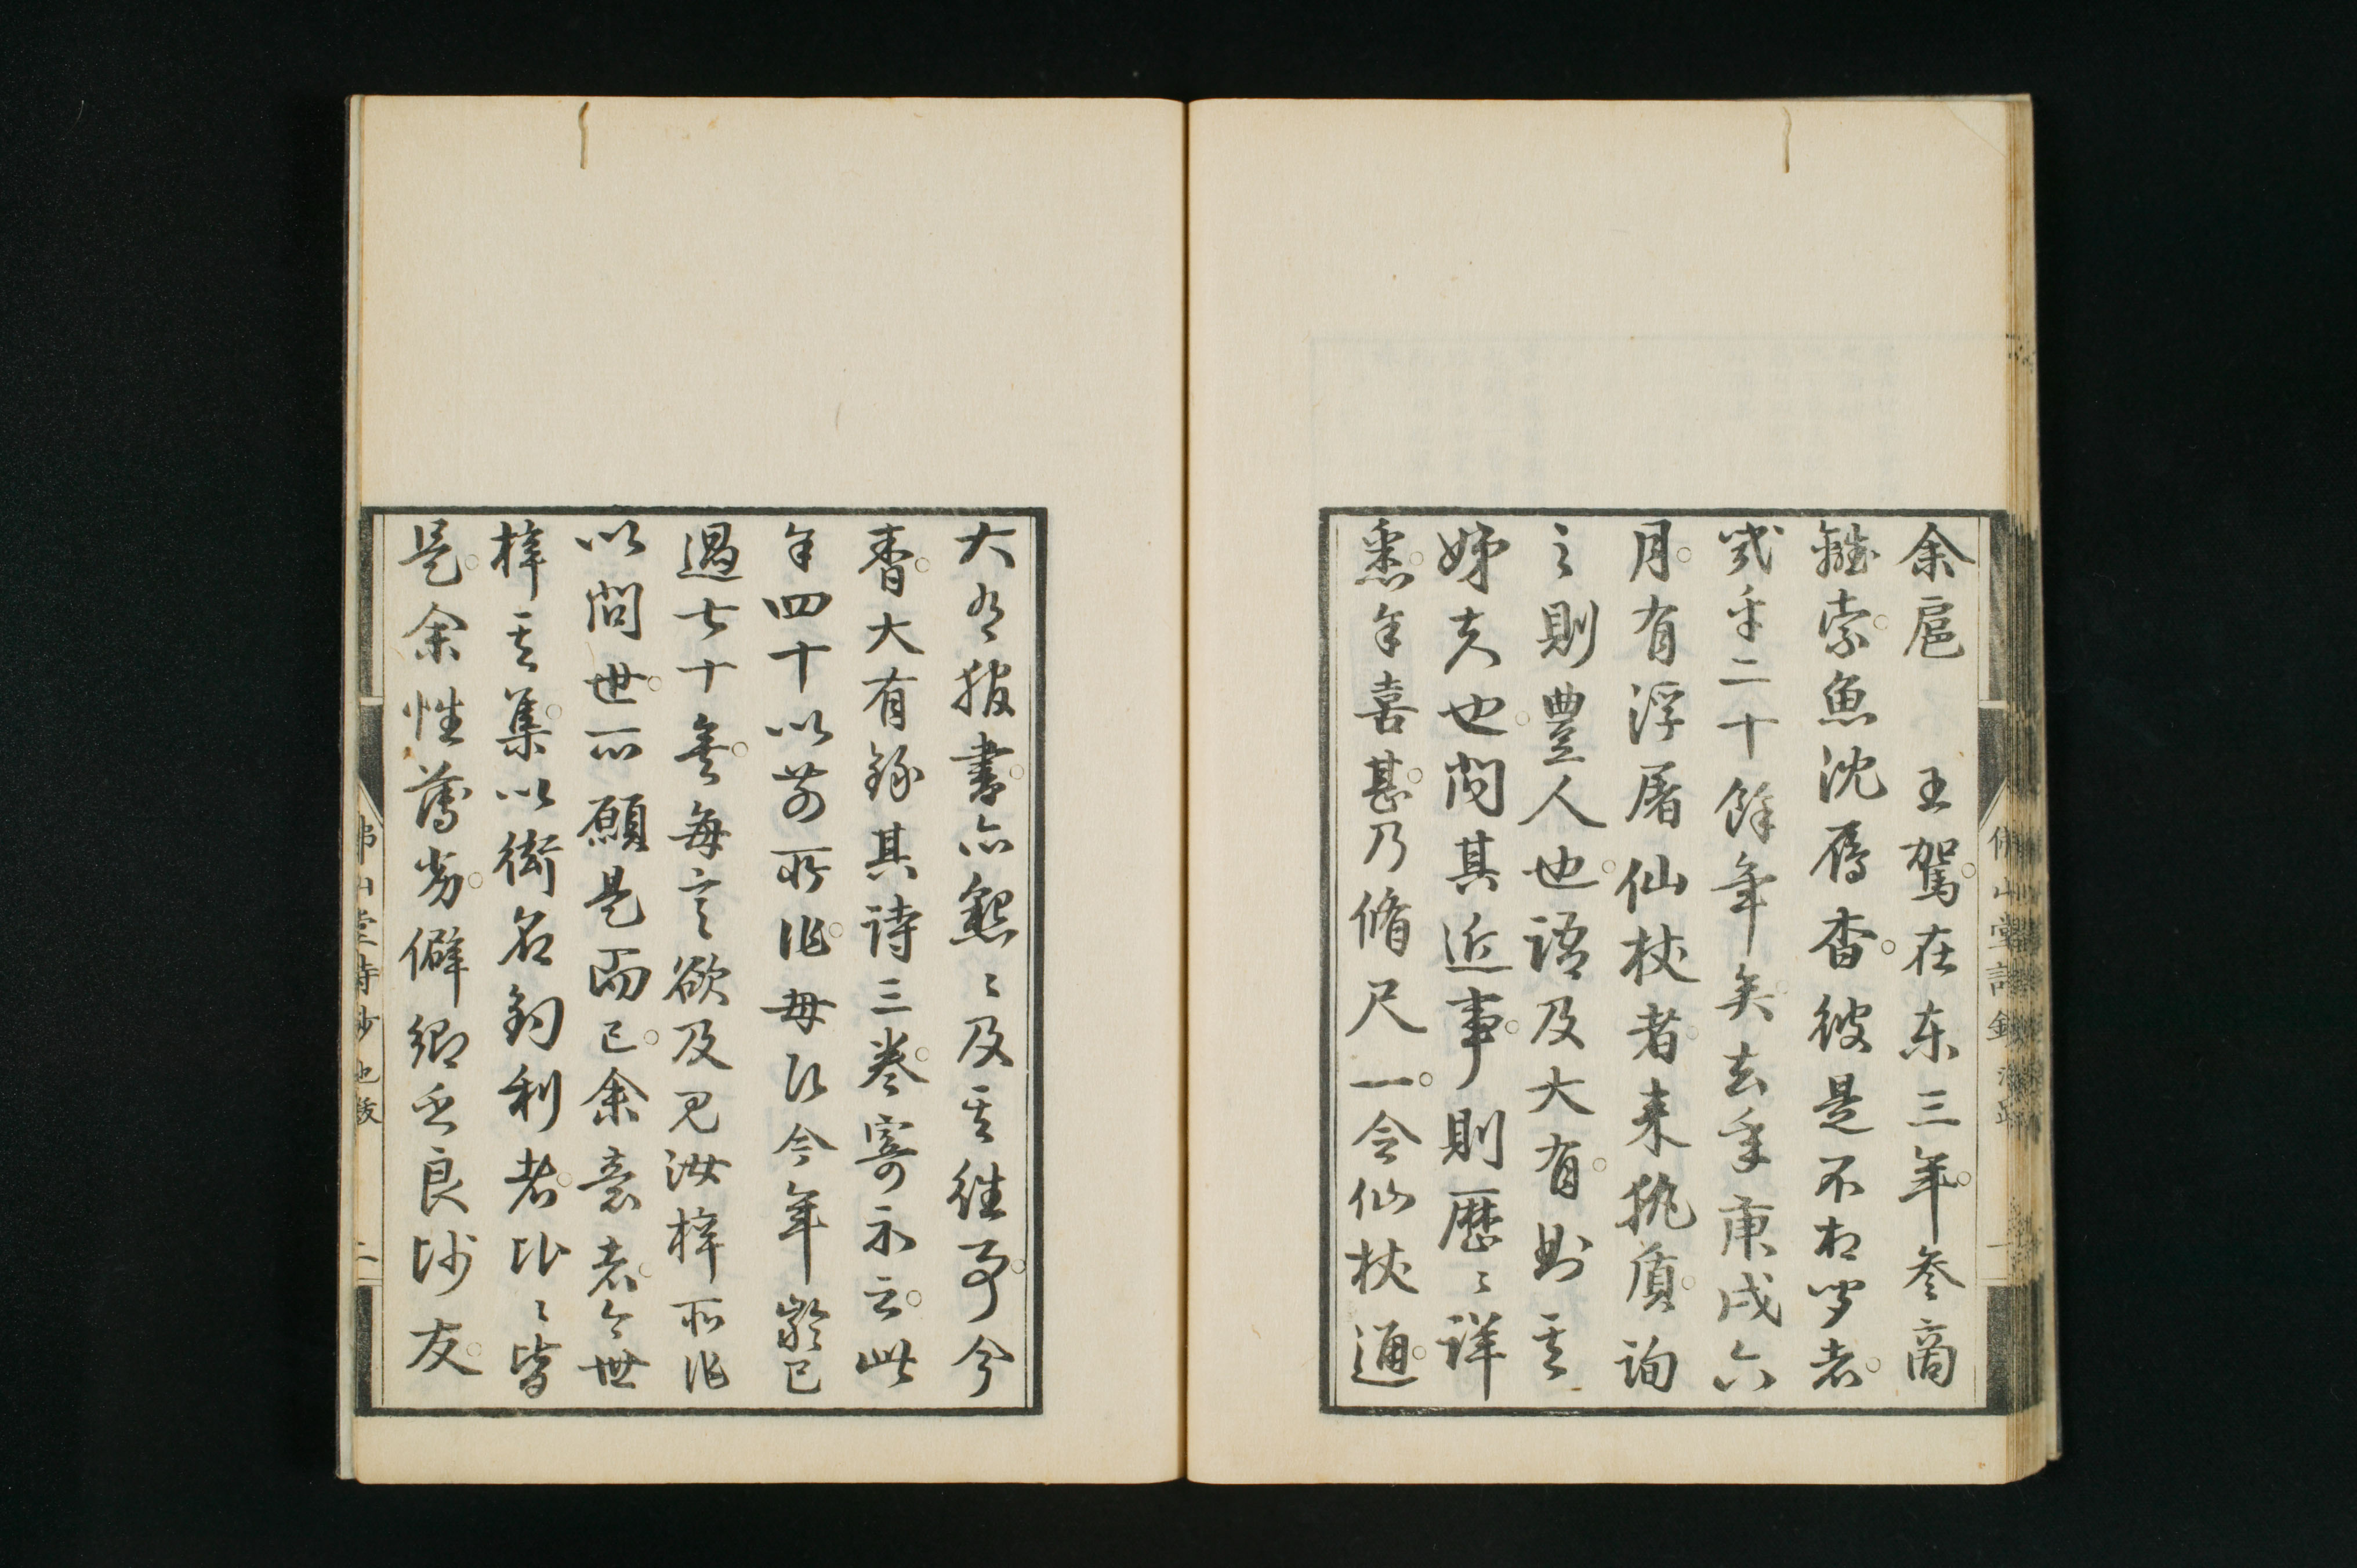 余扈　王駕在東三年參商
離索魚沈雁杳彼是不相聞者
幾乎二十餘年矣去年庚戌六
月有浮屠仙杖者来執質詢
之則豊人也語及大有則其
姊夫也問其近事則歴々詳
悉余喜甚乃脩尺一令仙杖通
大有報書亦懇々及其往事今
春大有録其詩三巻寄示云此
余四十以前所作毎以今年齡已
過七十矣毎言欲及見汝梓所作
以問世所願是而已余意者今世
梓其集以衒名釣利者比々皆
是余性蕩劣僻鄉乏良師友
佛山堂詩鈔
一
佛山堂詩鈔 池跋
二